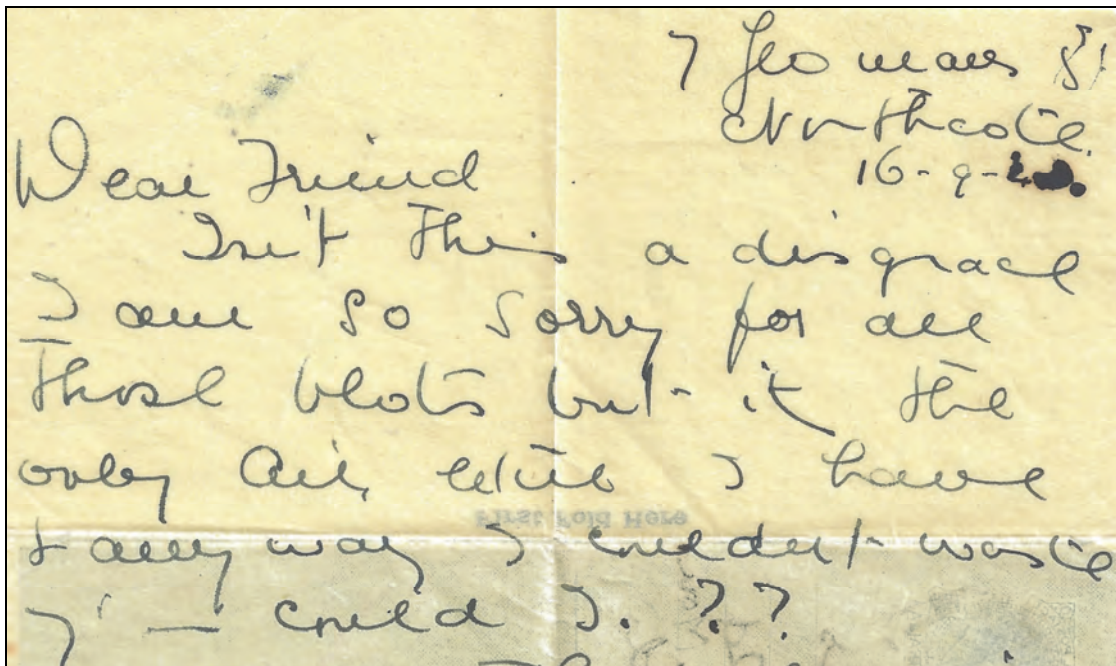 7 Yeomans St
Northcote.
16-9-
Dear Friend
Isn't this a disgrace
I am so sorry for all
those blots but it the
only Air letter I have
& any way I couldn't waste
it — could I. ??
First Fold Here